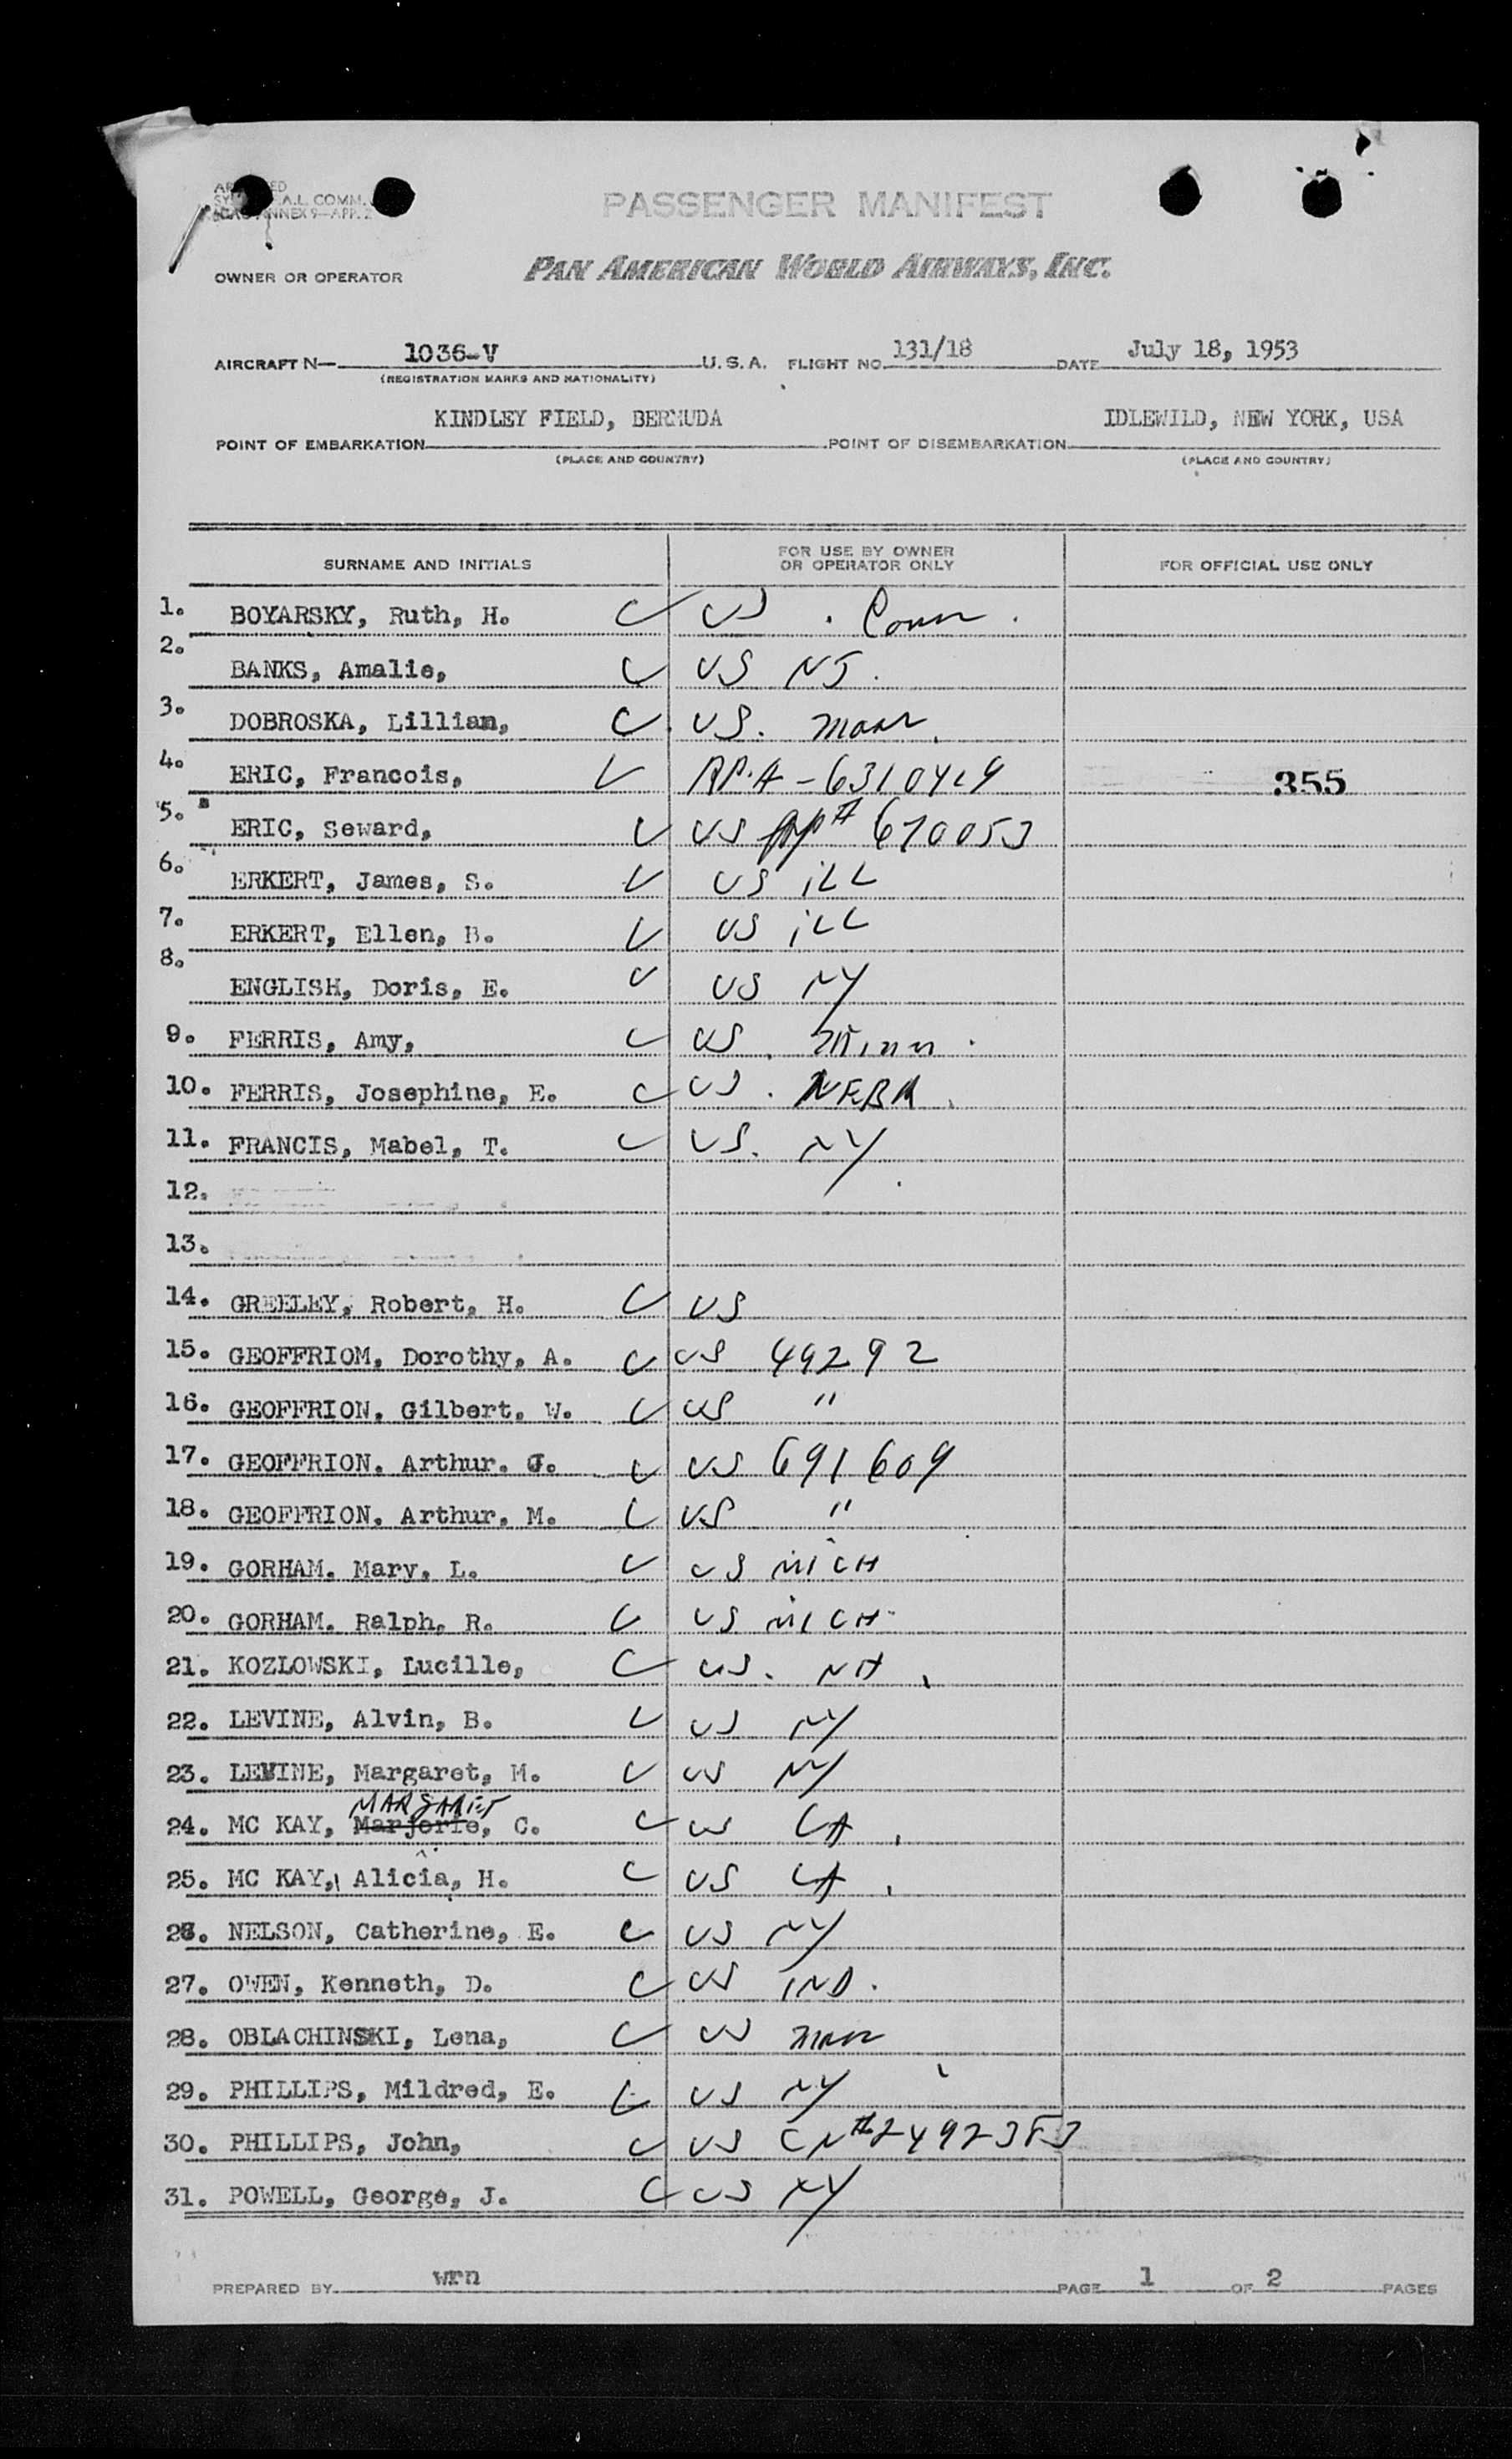 PASSENGER MANIFEST
A.L. COMM.
ANNEX 9-APP. 2
OWNER OR OPERATOR PAN AMERICAN WORLD AIRWAYS, INC.
AIRCRAFT N— 1036-V U. S. A. FLIGHT NO. 131/18 DATE July 18, 1953
(REGISTRATION MARKS AND NATIONALITY)
KINDLEY FIELD, BERMUDA IDLEWILD, NEW YORK, USA
POINT OF EMBARKATION POINT OF DISEMBARKATION
(PLACE AND COUNTRY) (PLACE AND COUNTRY)
SURNAME AND INITIALS FOR USE BY OWNER OR OPERATOR ONLY FOR OFFICIAL USE ONLY
1. BOYARSKY, Ruth, H. US . Conn .
2. BANKS, Amalie, US NJ.
3. DOBROSKA, Lillian, US. Mass.
4. ERIC, Francois, 355
5. ERIC, Seward, US pp# 670053
6. ERKERT, James, S. US ILL
7. ERKERT, Ellen, B. US ILL
8. ENGLISH, Doris, E. US NY
9. FERRIS, Amy, US. Minn.
10. FERRIS, Josephine, E. US. NEBR.
11. FRANCIS, Mabel, T. US. NY
12.
13.
14. GREELEY, Robert, H. US
15. GEOFFRIOM, Dorothy, A. US 49292
16. GEOFFRION, Gilbert, W. US "
17. GEOFFRION. Arthur. J. US 691609
18. GEOFFRION. Arthur, M. US "
19. GORHAM. Mary, L. US MICH
20. GORHAM. Ralph, R. US MICH
21. KOZLOWSKI, Lucille, US. NH.
22. LEVINE, Alvin, B. US NY
23. LEVINE, Margaret, M. US NY
MARGARET
24. MC KAY, Marjorie, C. US LA.
25. MC KAY, Alicia, H. US LA.
26. NELSON, Catherine, E. US NY
27. OWEN, Kenneth, D. US IND.
28. OBLACHINSKI, Lena, US Mass
29. PHILLIPS, Mildred, E. US NY
30. PHILLIPS, John, US CN#2492383
31. POWELL, George, J. US NY
PREPARED BY wrn PAGE 1 OF 2 PAGES